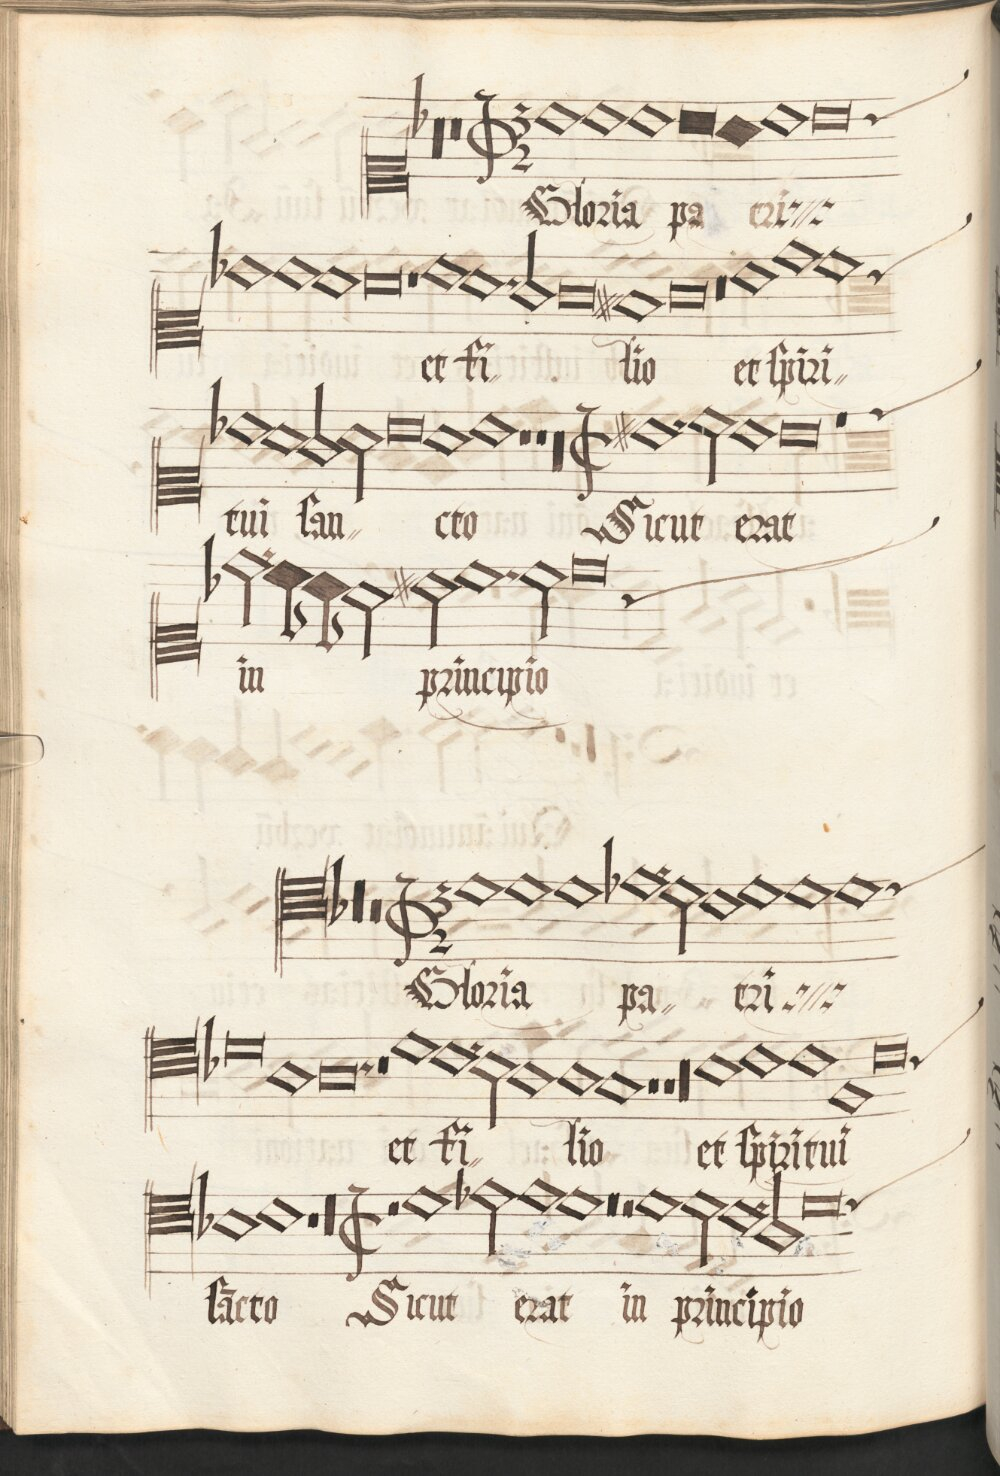 Gloria pa tri
et fi lio et spiri
tui san cto Sicut erat
in principio
Gloria pa tri
et fi lio et spiritui
sācto Sicut erat in principio